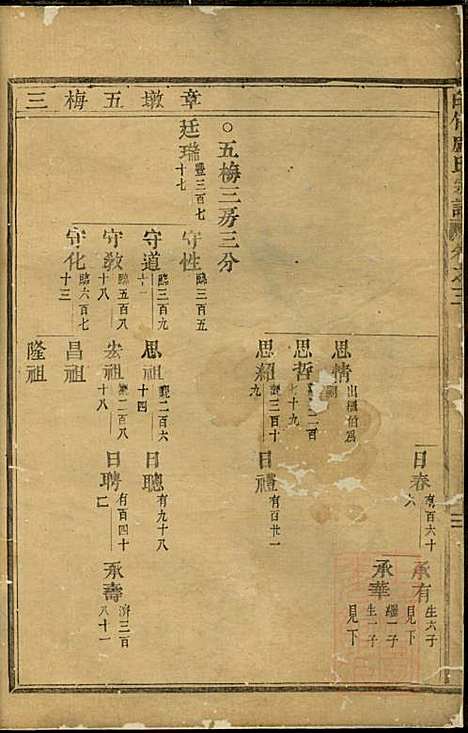 三梅五墩章
五梅三房三分
廷瑞
豐三百七
十七
守性
臨三百五
守道
臨三百九
十一
守教
臨五百八
十八
守化
臨六百七
十三
思情
出繼伯爲
嗣
思哲
二百
七十九
思紹
觀三百十
九
思祖
觀二百六
十四
宏祖
觀二百八
十八
昌祖
隆祖
日春
有百六十
六
日禮
有百廿一
日聰
有九十八
日聘
有百四十
七
承有
生六子
見下
承華
繼一子
生一子
見下
承壽
濟三百
八十一